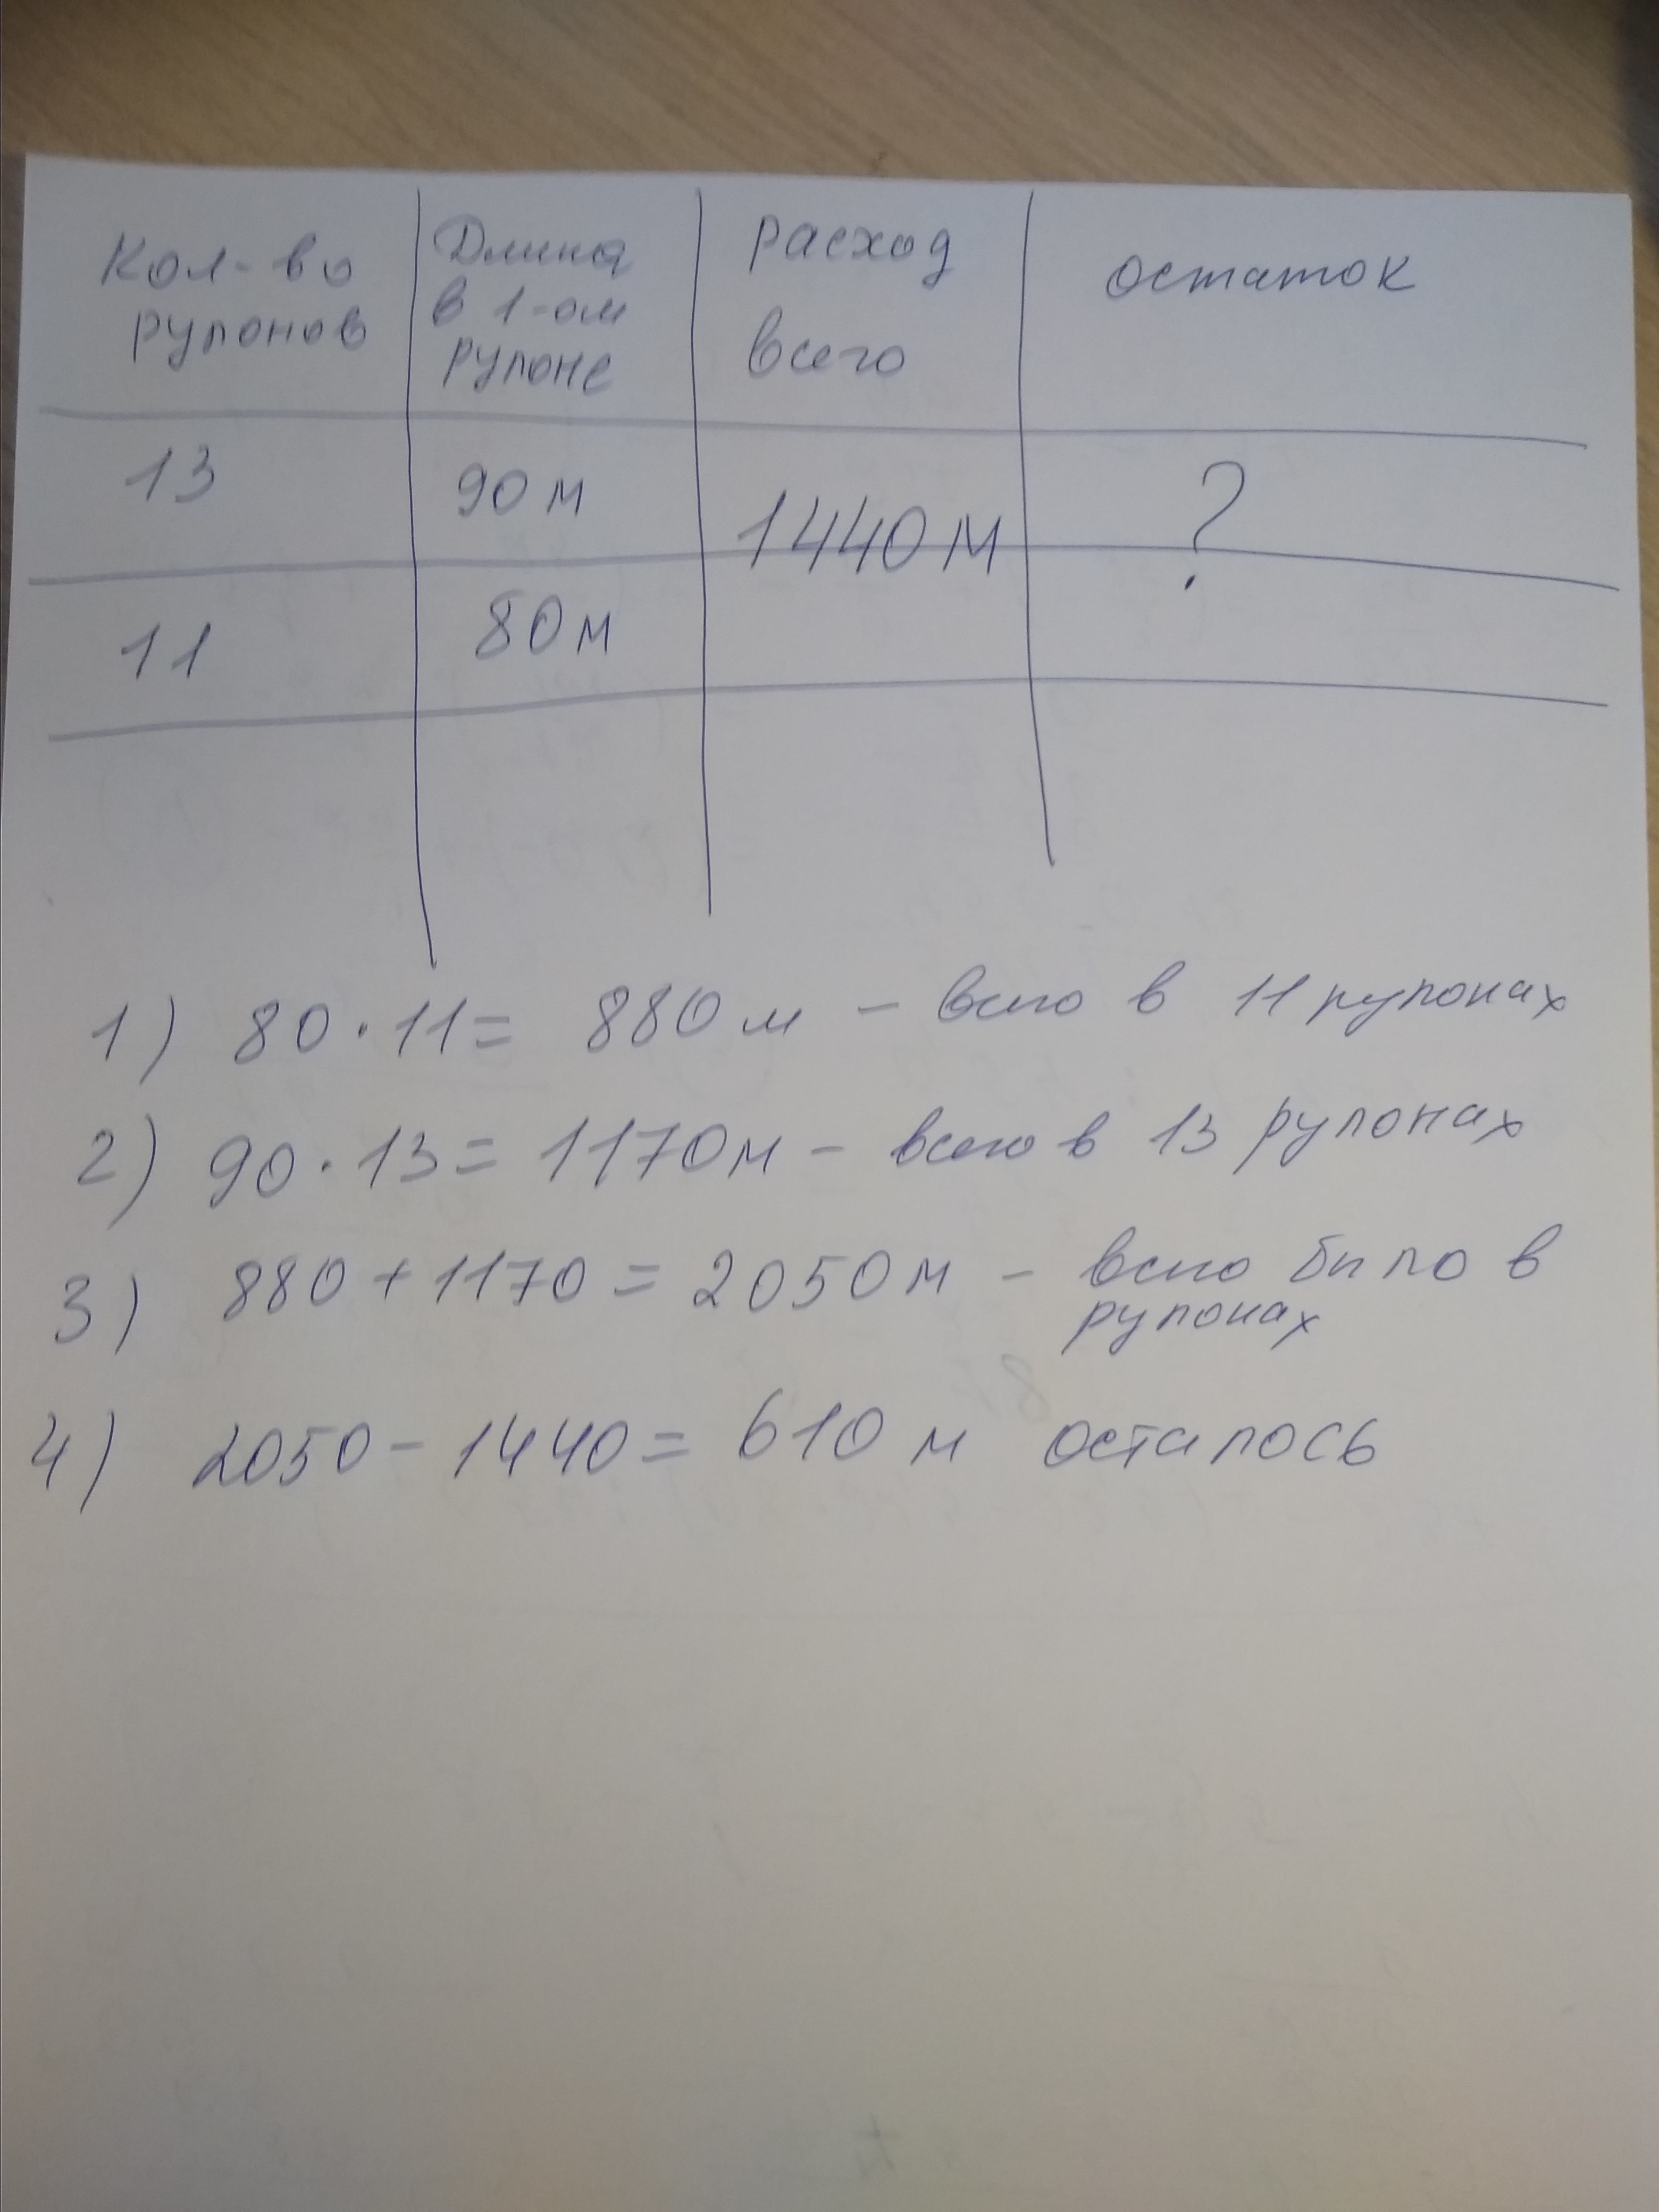 Кол-во рулонов
Длина в 1-ом рулоне
Расход всего
остаток
13
90 м
1440 м
?
11
80 м
1) 80 · 11 = 880 м – всего в 11 рулонах
2) 90 · 13 = 1170 м – всего в 13 рулонах
3) 880 + 1170 = 2050 м – всего было в
рулонах
4) 2050 – 1440 = 610 м осталось